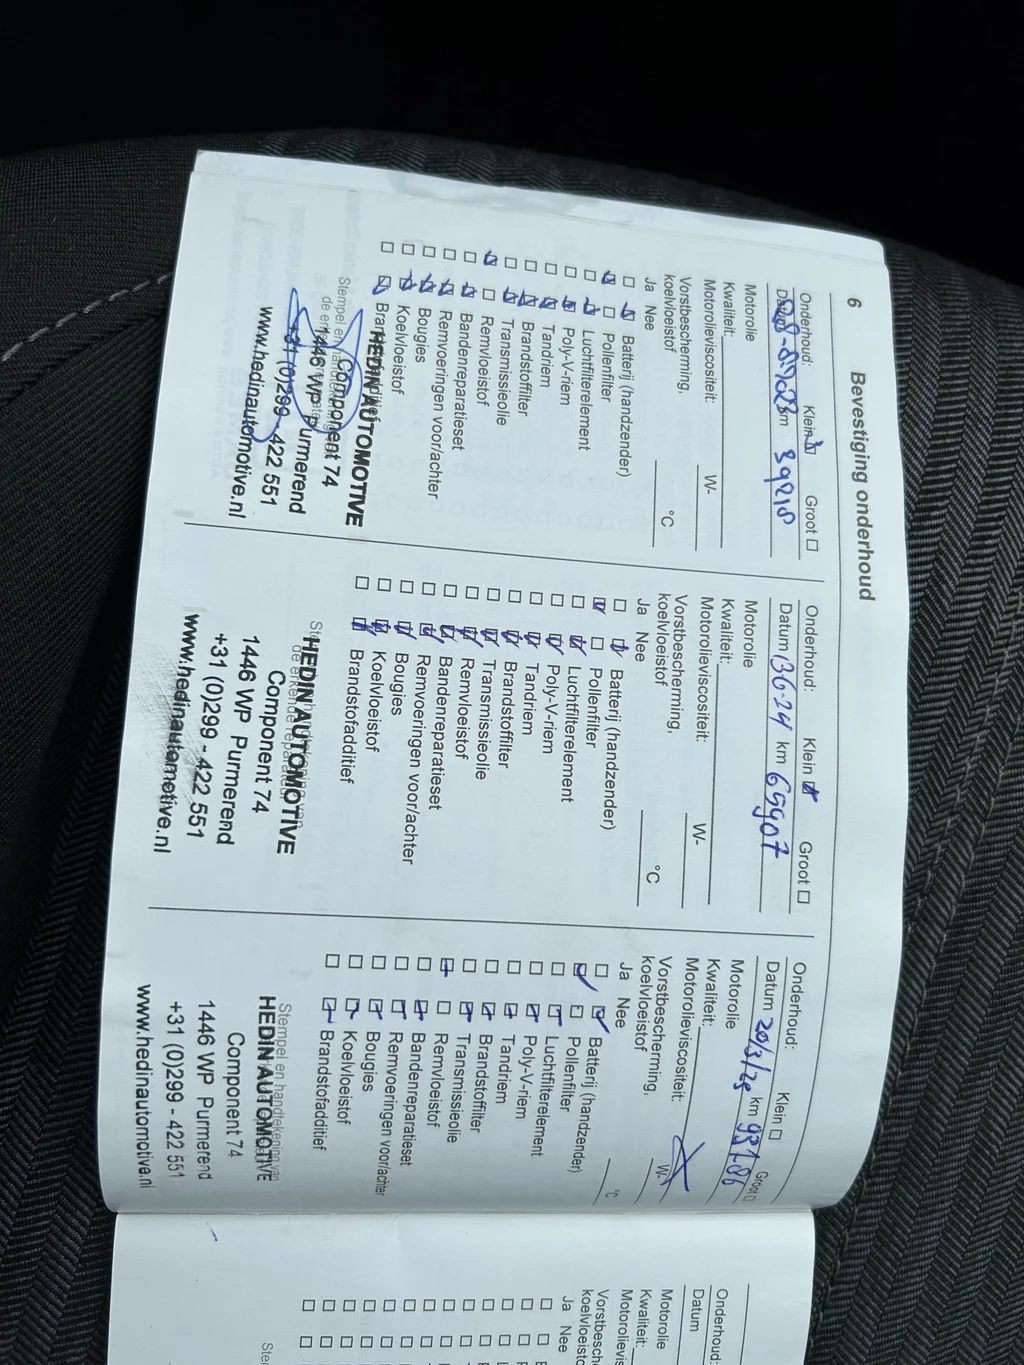 6 Bevestiging onderhoud
Onderhoud: Klein Groot
km 39218
Motorolie
Kwaliteit:
Motorolieviscositeit: W-
Vorstbescherming,
koelvloeistof °C
Ja Nee
Batterij (handzender)
Pollenfilter
Luchtfilterelement
Poly-V-riem
Tandriem
Brandstoffilter
Transmissieolie
Remvloeistof
Bandenreparatieset
Remvoeringen voor/achter
Bougies
Koelvloeistof
Stempel en
HEDIN AUTOMOTIVE
Component 74
1446 WP Purmerend
+31 (0)299 - 422 551
www.hedinautomotive.nl
Onderhoud: Klein Groot
Datum 13-6-24 km 69907
Motorolie
Kwaliteit:
Motorolieviscositeit: W-
Vorstbescherming,
koelvloeistof °C
Ja Nee
Batterij (handzender)
Pollenfilter
Luchtfilterelement
Poly-V-riem
Tandriem
Brandstoffilter
Transmissieolie
Remvloeistof
Bandenreparatieset
Remvoeringen voor/achter
Bougies
Koelvloeistof
Brandstofadditief
HEDIN AUTOMOTIVE
Component 74
1446 WP Purmerend
+31 (0)299 - 422 551
www.hedinautomotive.nl
Onderhoud: Klein Groot
Datum 20/3/25 km 93186
Motorolie
Kwaliteit:
Motorolieviscositeit: W-
Vorstbescherming,
koelvloeistof °C
Ja Nee
Batterij (handzender)
Pollenfilter
Luchtfilterelement
Poly-V-riem
Tandriem
Brandstoffilter
Transmissieolie
Remvloeistof
Bandenreparatieset
Remvoeringen voor/achter
Bougies
Koelvloeistof
Brandstofadditief
Stempel en handtekening van
HEDIN AUTOMOTIVE
Component 74
1446 WP Purmerend
+31 (0)299 - 422 551
www.hedinautomotive.nl
Onderhoud:
Datum
Motorolie
Kwaliteit:
Motorolievis
Vorstbesch
koelvloeisto
Ja Nee